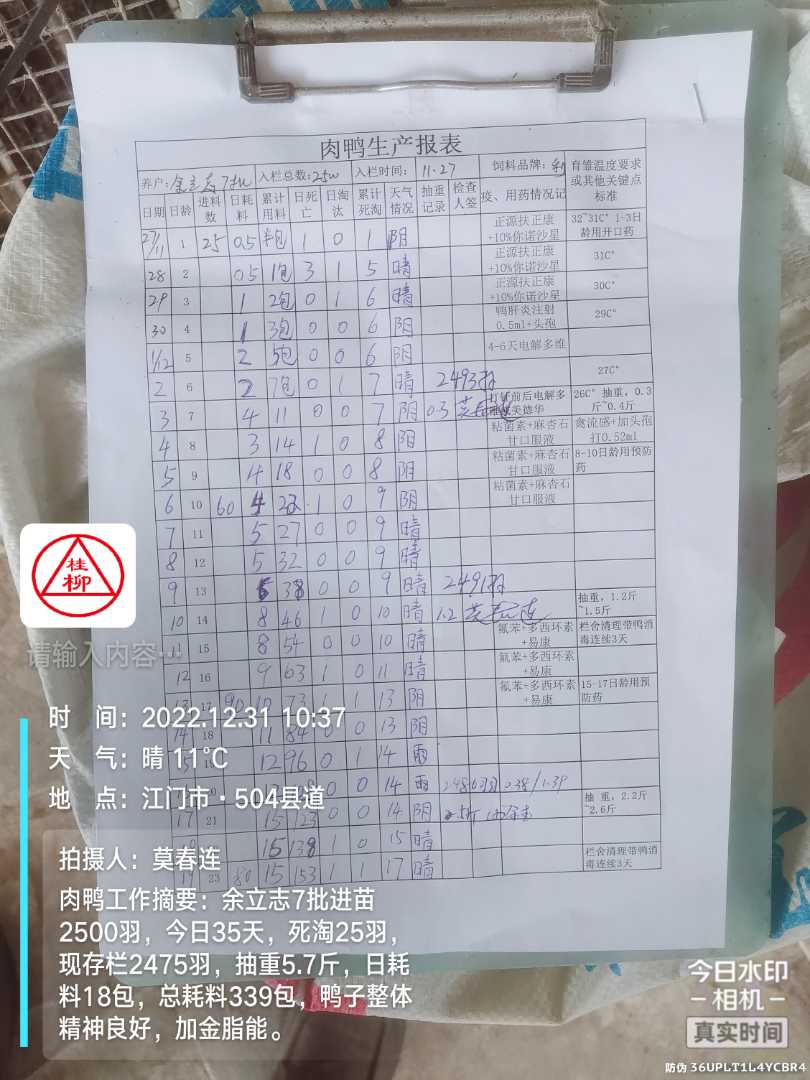 肉鸭生产报表
养户: 余立志7批 入栏总数: 25w 入栏时间: 11.27 饲料品牌: 疫、用药情况记 育雏温度要求或其他关键点标准
日期 日龄 进料数 日耗料 累计用料 日死亡 日淘汰 累计死淘 天气情况 抽重记录 检查人签
27/11 1 25 0.5 半包 1 0 1 阴 正源扶正康+10%你诺沙星 32~31C° 1-3日龄用开口药
28 2 0.5 1包 3 1 5 晴 正源扶正康+10%你诺沙星 31C°
29 3 1 2包 0 1 6 晴 正源扶正康+10%你诺沙星 30C°
30 4 1 3包 0 0 6 阴 鸭肝炎注射0.5ml+头孢 29C°
1/12 5 2 5包 0 0 6 阴 4-6天电解多维
2 6 2 7包 0 1 7 晴 2493羽 27C°
3 7 4 11 0 0 7 阴 0.3 打针前后电解多 美德华 26C° 抽重，0.3斤~0.4斤
4 8 3 14 1 0 8 阴 粘菌素+麻杏石甘口服液 禽流感+加头孢打0.52ml
5 9 4 18 0 0 8 阴 粘菌素+麻杏石甘口服液 8-10日龄用预防药
6 10 60 4 22 1 0 9 阴 粘菌素+麻杏石甘口服液
7 11 5 27 0 0 9 晴
8 12 5 32 0 0 9 晴
9 13 6 38 0 0 9 晴 2491羽
10 14 8 46 1 0 10 晴 1.2 抽重，1.2斤~1.5斤
11 15 8 54 0 0 10 晴 氟苯+多西环素+易康 栏舍清理带鸭消毒连续3天
12 16 9 63 1 0 11 晴 氟苯+多西环素+易康
13 17 90 10 73 1 1 13 阴 氟苯+多西环素+易康 15-17日龄用预防药
14 18 11 84 0 0 13 阴
15 12 96 0 1 14 雨
0 0 14 雨 2486羽 0.38/1.39
17 21 15 123 0 0 14 阴 2.5斤 抽 重，2.2斤~2.6斤
15 138 1 0 15 晴
23 80 15 153 1 1 17 晴 栏舍清理带鸭消毒连续3天
桂柳
请输入内容...
时 间：2022.12.31 10:37
天 气：晴 11℃
地 点：江门市·504县道
拍摄人：莫春连
肉鸭工作摘要：余立志7批进苗
2500羽，今日35天，死淘25羽，
现存栏2475羽，抽重5.7斤，日耗
料18包，总耗料339包，鸭子整体
精神良好，加金脂能。
今日水印
-相机-
真实时间
防伪 36UPLT1L4YCBR4